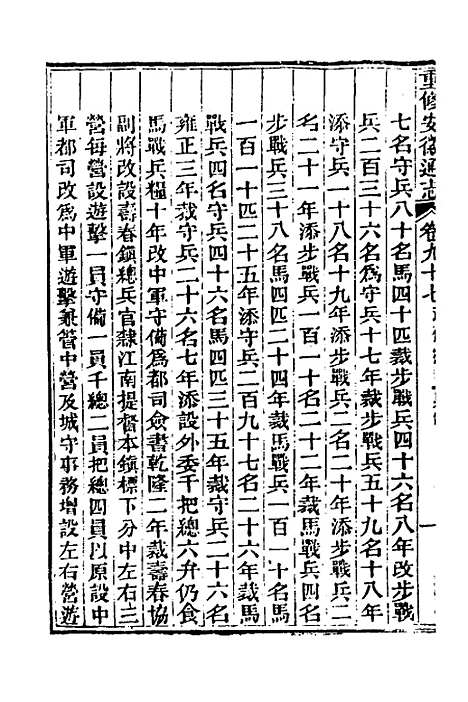 重修安徽通志 卷九十七
七名守兵八十名馬四十匹裁步戰兵四十六名八年改步戰
兵二百三十六名爲守兵十七年裁步戰兵五十九名十八年
添守兵一十八名十九年添步戰兵二名二十年添步戰兵二
名二十一年添步戰兵一百一十名二十二年裁馬戰兵四名
步戰兵三十八名馬四匹二十四年裁馬戰兵一百一十名馬
一百一十匹二十五年添守兵二百九十七名二十六年裁馬
戰兵四名守兵四十六名馬四匹三十五年裁守兵二十六名
雍正三年裁守兵二十六名七年添設外委千把總六弁仍食
馬戰兵糧十年改中軍守備爲都司僉書乾隆二年裁壽春協
副將改設壽春鎮總兵官隸江南提督本鎮標下分中左右三
營每營設遊擊一員守備一員千總二員把總四員以原設中
軍都司改爲中軍遊擊兼管中營及城守事務增設左右營遊